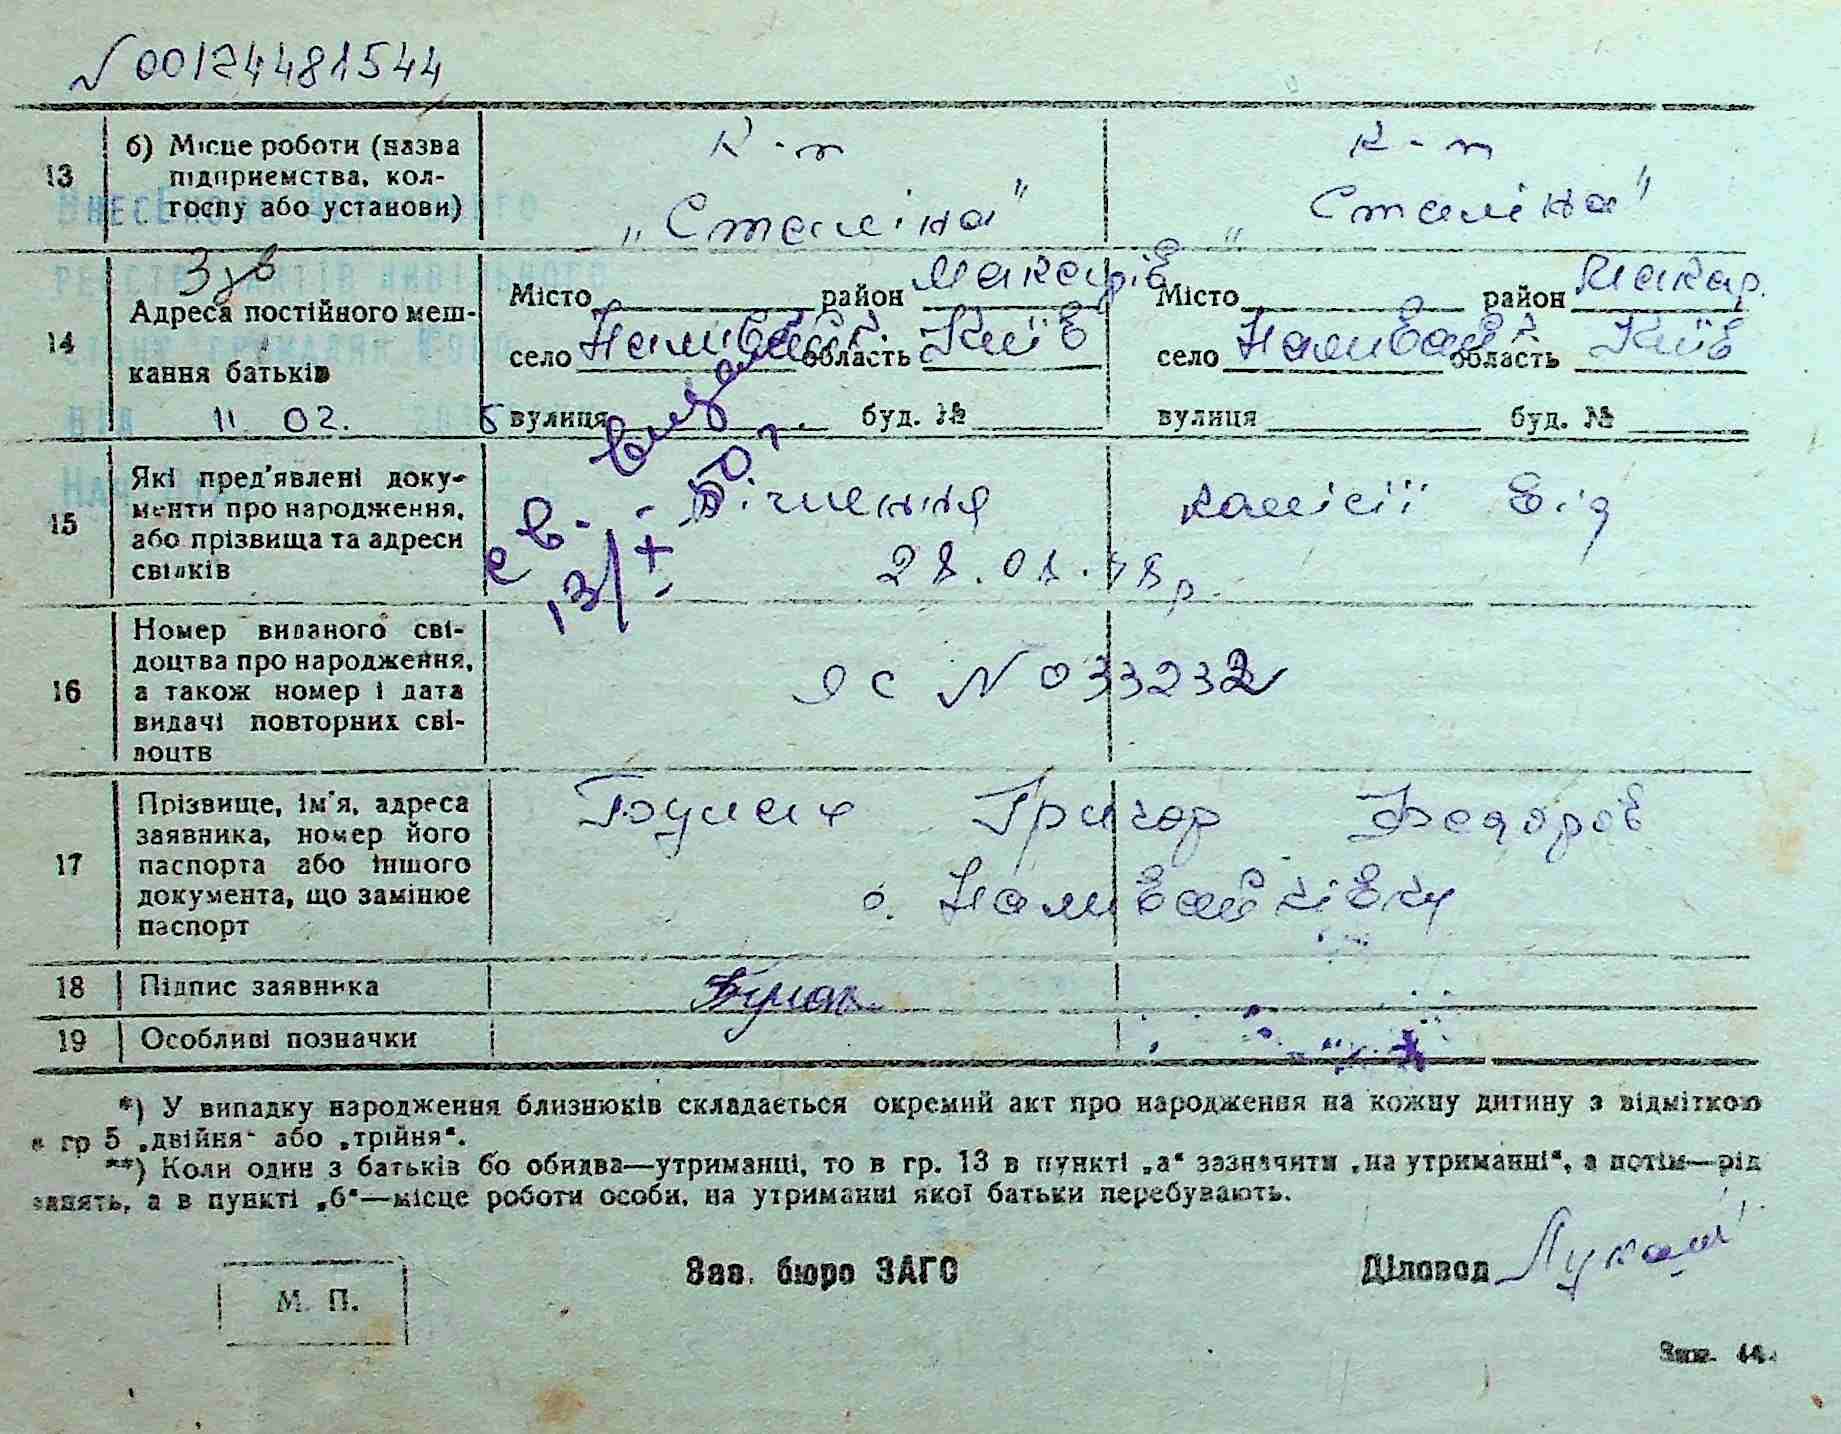 N 00124481544
13
б) Місце роботи (назва підприємства, кол-
госпу або установи)
к-п
„Сталіна"
к-п
„Сталіна"
14
Адреса постійного меш-
кання батьків
11. 02.
Місто район Макарів
село область Київ
вулиця буд. №
Місто район Макар.
село область Київ
вулиця буд. №
15
Які пред'явлені доку-
менти про народження,
або прізвища та адреси
свідків
св. видан
13/X-50 р.
Рішення комісії від
28.01.48р.
16
Номер виданого сві-
доцтва про народження,
а також номер і дата
видачі повторних сві-
доцтв
ЯС N 033232
17
Прізвище, ім'я, адреса
заявника, номер його
паспорта або іншого
документа, що замінює
паспорт
Булах Григор Федоров
с. Наливайківку
18 Підпис заявника
Булах
19 Особливі позначки
*) У випадку народження близнюків складається окремий акт про народження на кожну дитину з відміткою
в гр 5 „двійня“ або „трійня“.
**) Коли один з батьків бо обидва—утриманці, то в гр. 13 в пункті „а“ зазначити „на утриманні“, а потім—рід
занять, а в пункті „б“—місце роботи особи, на утриманні якої батьки перебувають.
М. П.
Зав. бюро ЗАГС
Діловод
Зам. 44